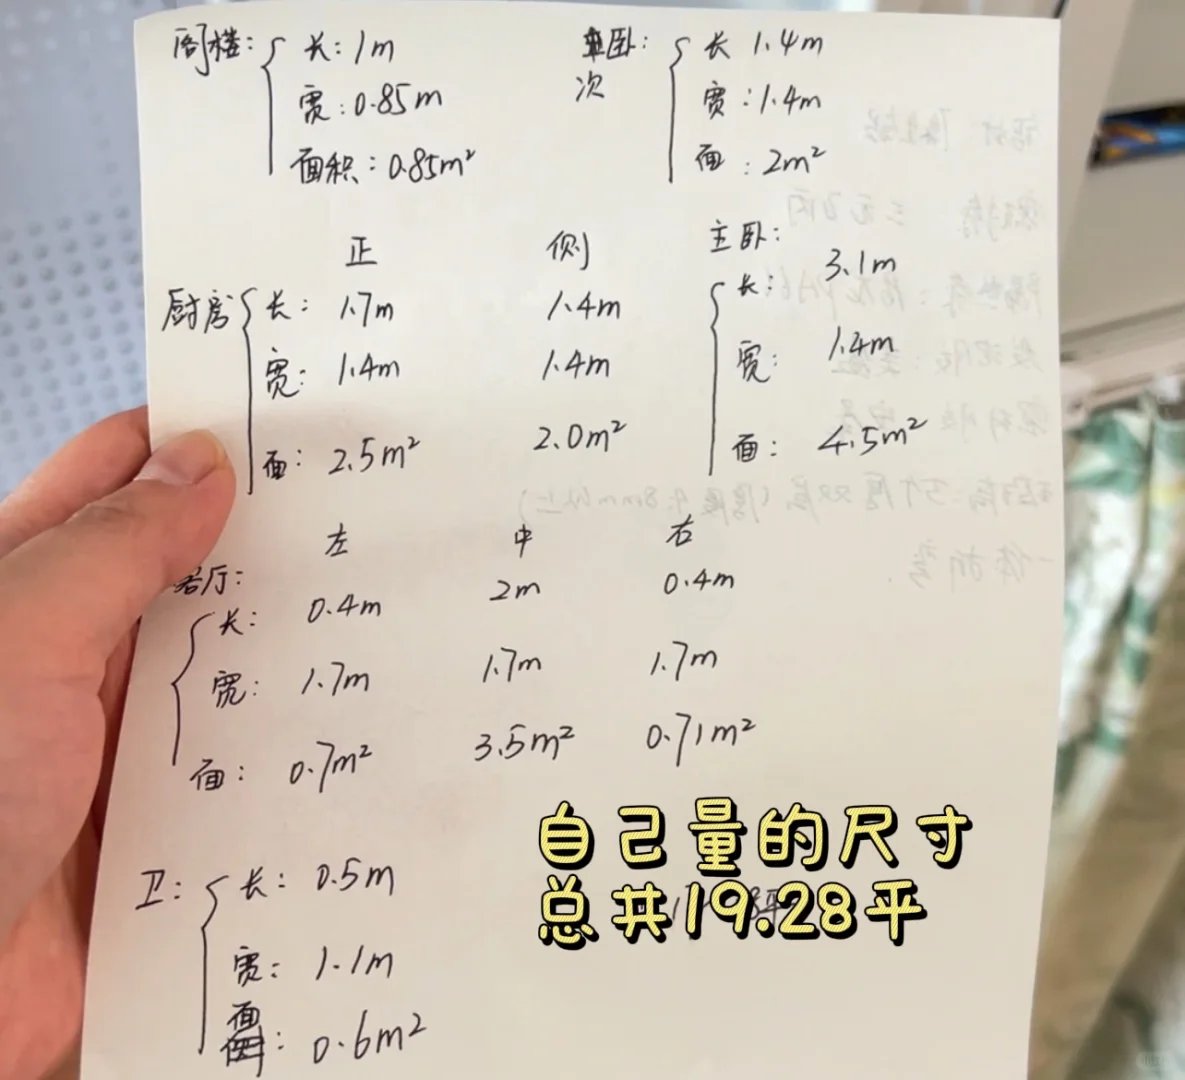 阁楼：
长：1m
宽：0.85m
面积：0.85m²
次卧：
长 1.4m
宽：1.4m
面：2m²
主卧：
长：3.1m
宽：1.4m
面：4.5m²
正 侧
厨房
长：1.7m 1.4m
宽：1.4m 1.4m
面：2.5m² 2.0m²
左 中 右
客厅：
长：0.4m 2m 0.4m
宽：1.7m 1.7m 1.7m
面：0.7m² 3.5m² 0.71m²
卫：
长：0.5m
宽：1.1m
面：0.6m²
自己量的尺寸
总共19.28平